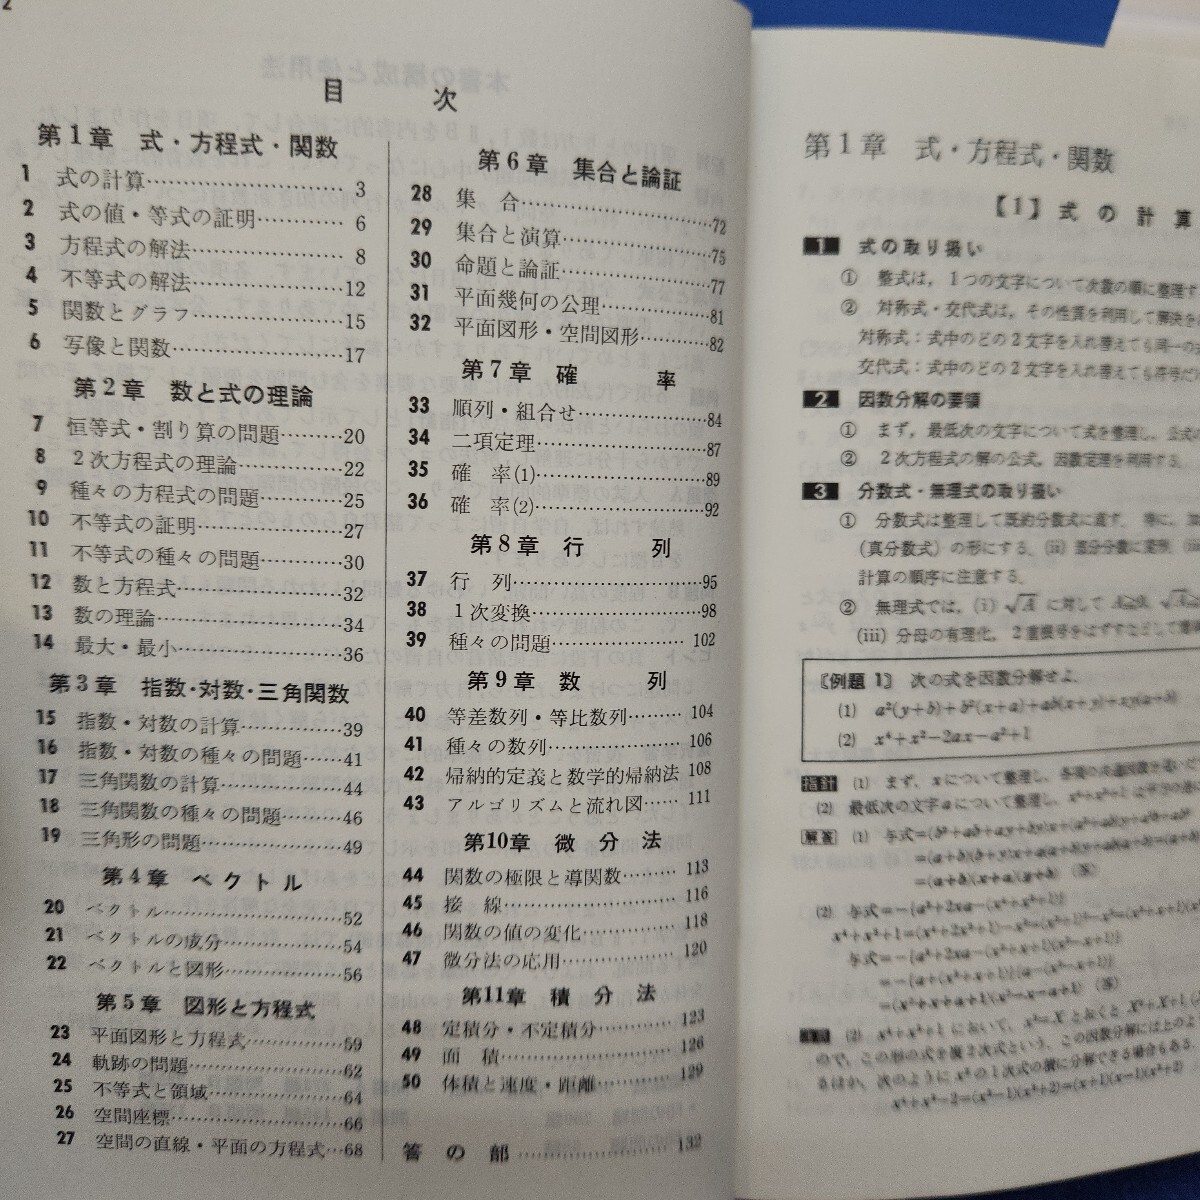 2
目 次
第1章 式・方程式・関数
1 式の計算…………………… 3
2 式の値・等式の証明………… 6
3 方程式の解法………………… 8
4 不等式の解法…………………12
5 関数とグラフ…………………15
6 写像と関数……………………17
第2章 数と式の理論
7 恒等式・割り算の問題………20
8 2次方程式の理論……………22
9 種々の方程式の問題…………25
10 不等式の証明…………………27
11 不等式の種々の問題…………30
12 数と方程式……………………32
13 数の理論………………………34
14 最大・最小……………………36
第3章 指数・対数・三角関数
15 指数・対数の計算……………39
16 指数・対数の種々の問題……41
17 三角関数の計算………………44
18 三角関数の種々の問題………46
19 三角形の問題…………………49
第4章 ベクトル
20 ベクトル………………………52
21 ベクトルの成分………………54
22 ベクトルと図形………………56
第5章 図形と方程式
23 平面図形と方程式……………59
24 軌跡の問題……………………62
25 不等式と領域…………………64
26 空間座標………………………66
27 空間の直線・平面の方程式…68
第6章 集合と論証
28 集 合…………………………72
29 集合と演算……………………75
30 命題と論証……………………77
31 平面幾何の公理………………81
32 平面図形・空間図形…………82
第7章 確 率
33 順列・組合せ…………………84
34 二項定理………………………87
35 確 率(1)………………………89
36 確 率(2)………………………92
第8章 行 列
37 行 列…………………………95
38 1次変換………………………98
39 種々の問題……………………102
第9章 数 列
40 等差数列・等比数列………104
41 種々の数列…………………106
42 帰納的定義と数学的帰納法 108
43 アルゴリズムと流れ図……111
第10章 微 分 法
44 関数の極限と導関数………113
45 接 線………………………116
46 関数の値の変化……………118
47 微分法の応用………………120
第11章 積 分 法
48 定積分・不定積分…………123
49 面 積………………………126
50 体積と速度・距離…………129
答 の 部………………………132
第1章 式・方程式・関数
【1】 式 の 計 算
1 式の取り扱い
① 整式は，1つの文字について次数の順に整理す
② 対称式・交代式は，その性質を利用して解決を
対称式：式中のどの2文字を入れ替えても同一の
交代式：式中のどの2文字を入れ替えても符号だけ
2 因数分解の要領
① まず，最低次の文字について式を整理し，公式
② 2次方程式の解の公式，因数定理を利用する．
3 分数式・無理式の取り扱い
① 分数式は整理して既約分数式に直す．特に，
(真分数式）の形にする．(ii) 部分分数に変形．
計算の順序に注意する．
② 無理式では，(i) √A に対して A≧0, √A≧
(iii) 分母の有理化，2重根号をはずすなどして
〖例題 1〗 次の式を因数分解せよ．
(1) a²(y+b)+b²(x+a)+ab(x+y)+xy(a+b)
(2) x⁴+x²−2ax−a²+1
指針 (1) まず，xについて整理し，各項の共通因数を
(2) 最低次の文字aについて整理し，x⁴+x²+1は平方の差に
解答 (1) 与式=(b²+ab+ay+by)x+(a²+ab)y+a²b+ab²
=(a+b)(b+y)x+a(a+b)y+ab(a+b)
=(a+b)(x+a)(y+b) (答)
(2) 与式=−{a²+2xa−(x⁴+x²+1)}
x⁴+x²+1=(x⁴+2x²+1)−x²=(x²+x+1)(x²
与式=−{a²+2xa−(x²+x+1)(x²−x+1)}
=−{a+(x²+x+1)}{a−(x²−x+1)}
=(x²+x+a+1)(x²−x−a+1) (答)
(2) x⁴+x²+1 において，x²=X とおくと X²+X+1
ので，この形の式を複2次式という．この因数分解には上のよう
るほか，次のように x² の1次式の積に分解できる場合もある．
x⁴+x²−2=(x²−1)(x²+2)=(x+1)(x−1)(x²+2)